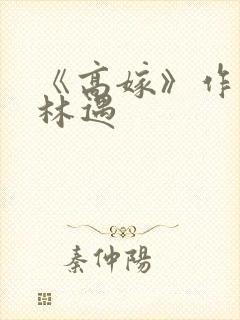 《高嫁》作
林遇
秦仲陽